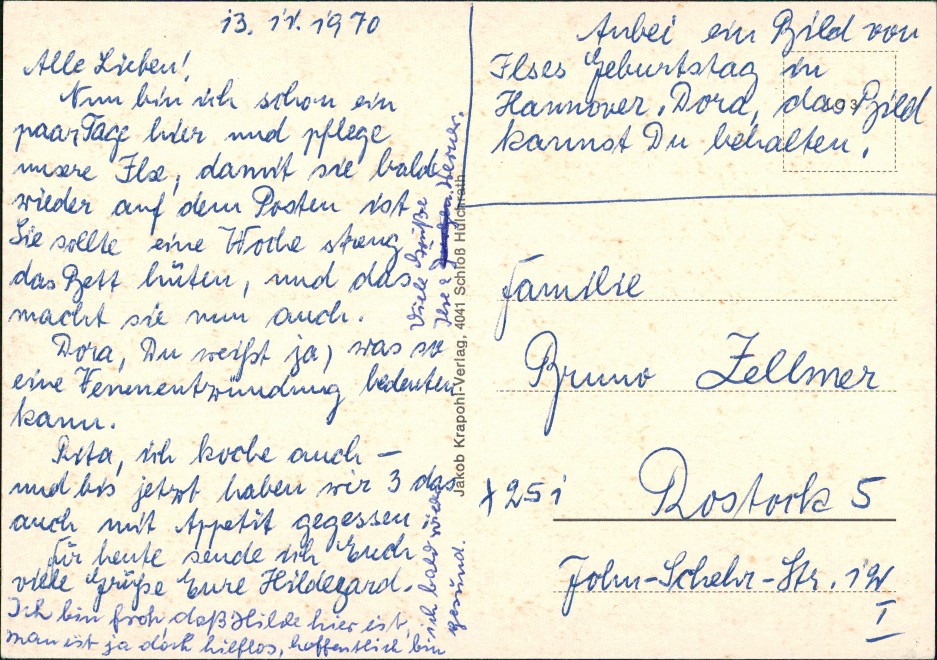 13. IV. 1970
Alle Lieben!
Nun bin ich schon ein
paar Tage hier und pflege
unsere Ilse, damit sie bald
wieder auf dem Posten ist
Sie sollte eine Woche streng
das Bett hüten, und das
macht sie nun auch.
Dora, Du weißt ja, was so
eine Venenentzündung bedeuten
kann.
Rita, ich koche auch –
und bis jetzt haben wir 3 das
auch mit Appetit gegessen.
Für heute sende ich Euch
viele Grüße Eure Hildegard.
Ich bin froh daß Hilde hier ist,
man ist ja doch hilflos, hoffentlich bin
ich bald wieder
gesund.
Viele Grüße
Ilse & Werner.
Jakob Krapohl-Verlag, 4041 Schloß Hülchrath
Anbei ein Bild von
Ilses Geburtstag in
Hannover. Dora, das Bild
kannst Du behalten.
93
Familie
Bruno Zellmer
X 251 Rostock 5
John-Schehr-Str. 12
I